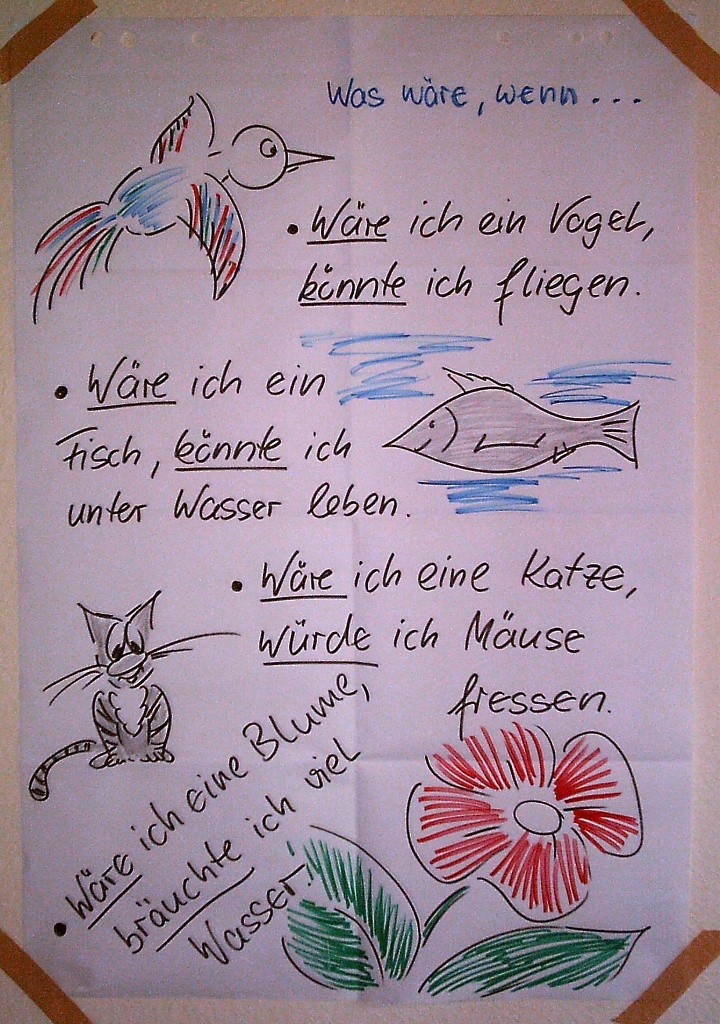 Was wäre, wenn...
• Wäre ich ein Vogel,
könnte ich fliegen.
• Wäre ich ein
Fisch, könnte ich
unter Wasser leben.
• Wäre ich eine Katze,
würde ich Mäuse
fressen.
• Wäre ich eine Blume,
bräuchte ich viel
Wasser.